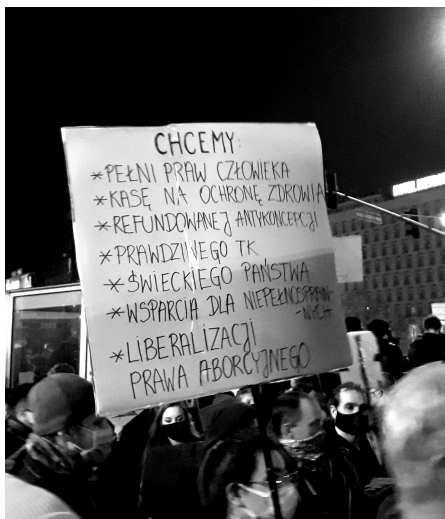 CHCEMY:
*PEŁNI PRAW CZŁOWIEKA
*KASĘ NA OCHRONĘ ZDROWIA
*REFUNDOWANEJ ANTYKONCEPCJI
*PRAWDZIWEGO TK
*ŚWIECKIEGO PAŃSTWA
*WSPARCIA DLA NIEPEŁNOSPRAW-
-NYCH
*LIBERALIZACJI
PRAWA ABORCYJNEGO